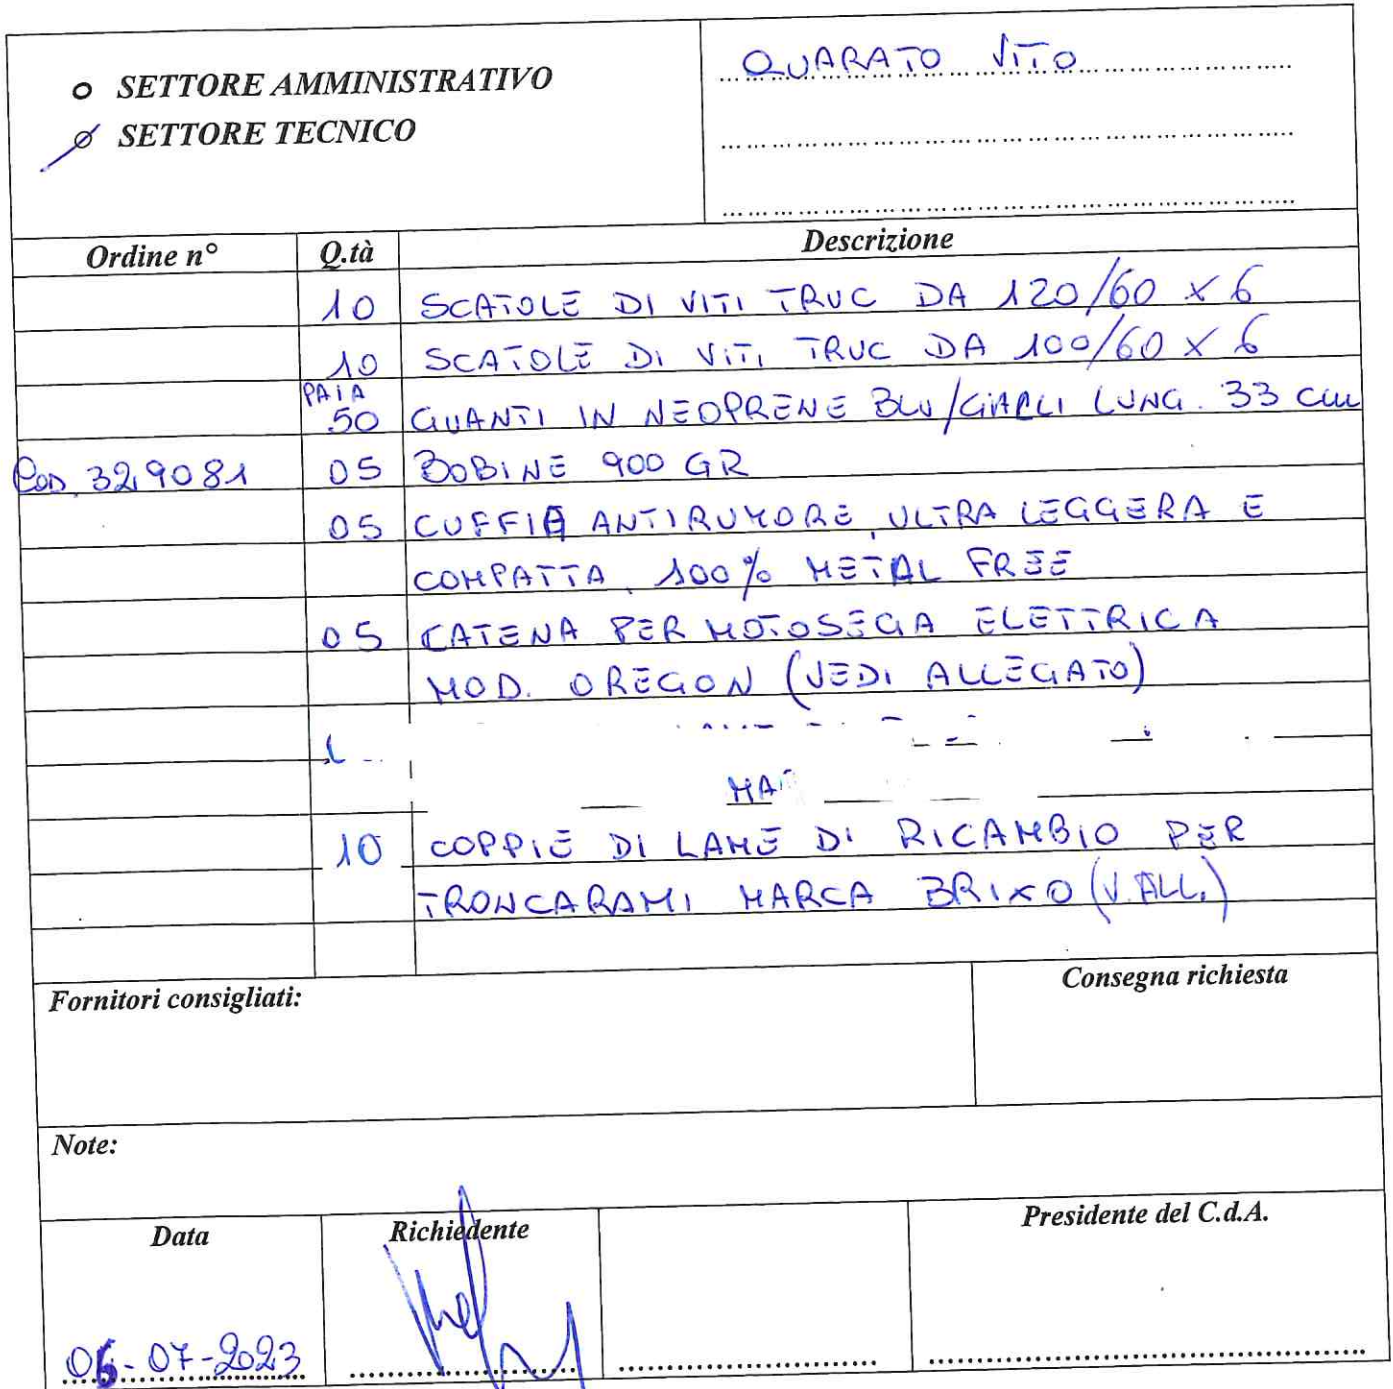 SETTORE AMMINISTRATIVO
SETTORE TECNICO
QUARATO VITO
Ordine n° Q.tà Descrizione
10 SCATOLE DI VITI TRUC DA 120/60 x 6
10 SCATOLE DI VITI TRUC DA 100/60 x 6
PAIA
50 GUANTI IN NEOPRENE BLU/GIALLI LUNG. 33 cm
COD. 329081 05 BOBINE 900 GR
05 CUFFIA ANTIRUMORE ULTRA LEGGERA E
COMPATTA, 100% METAL FREE
05 CATENA PER MOTOSEGA ELETTRICA
MOD. OREGON (VEDI ALLEGATO)
10 COPPIE DI LAME DI RICAMBIO PER
TRONCARAMI MARCA BRIXO (V. ALL.)
Fornitori consigliati:
Consegna richiesta
Note:
Data Richiedente Presidente del C.d.A.
06-07-2023